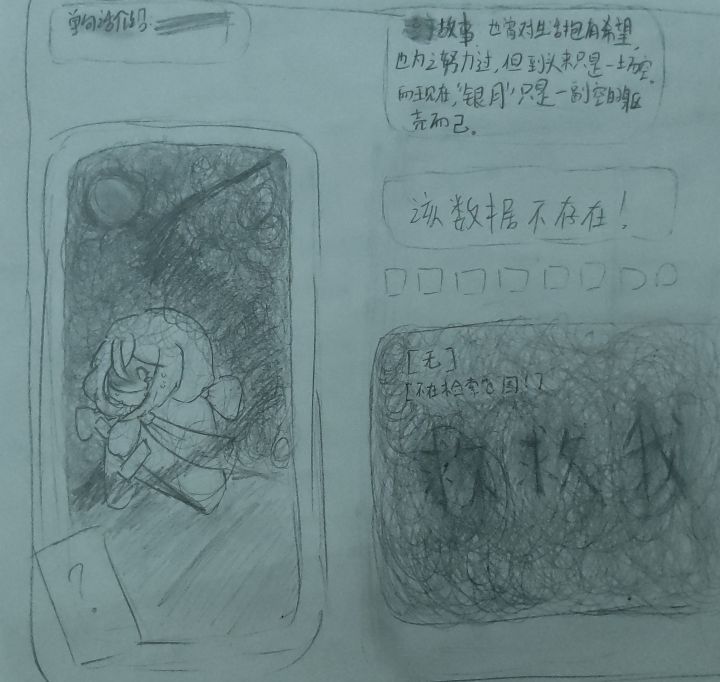 单句话介绍：
故事，也曾对生活抱有希望，
也为之努力过，但到头来只是一场空。
而现在，“银月”只是一副空的躯
壳而已。
该数据不存在！
[无]
[不在检索范围！]
救救我
?